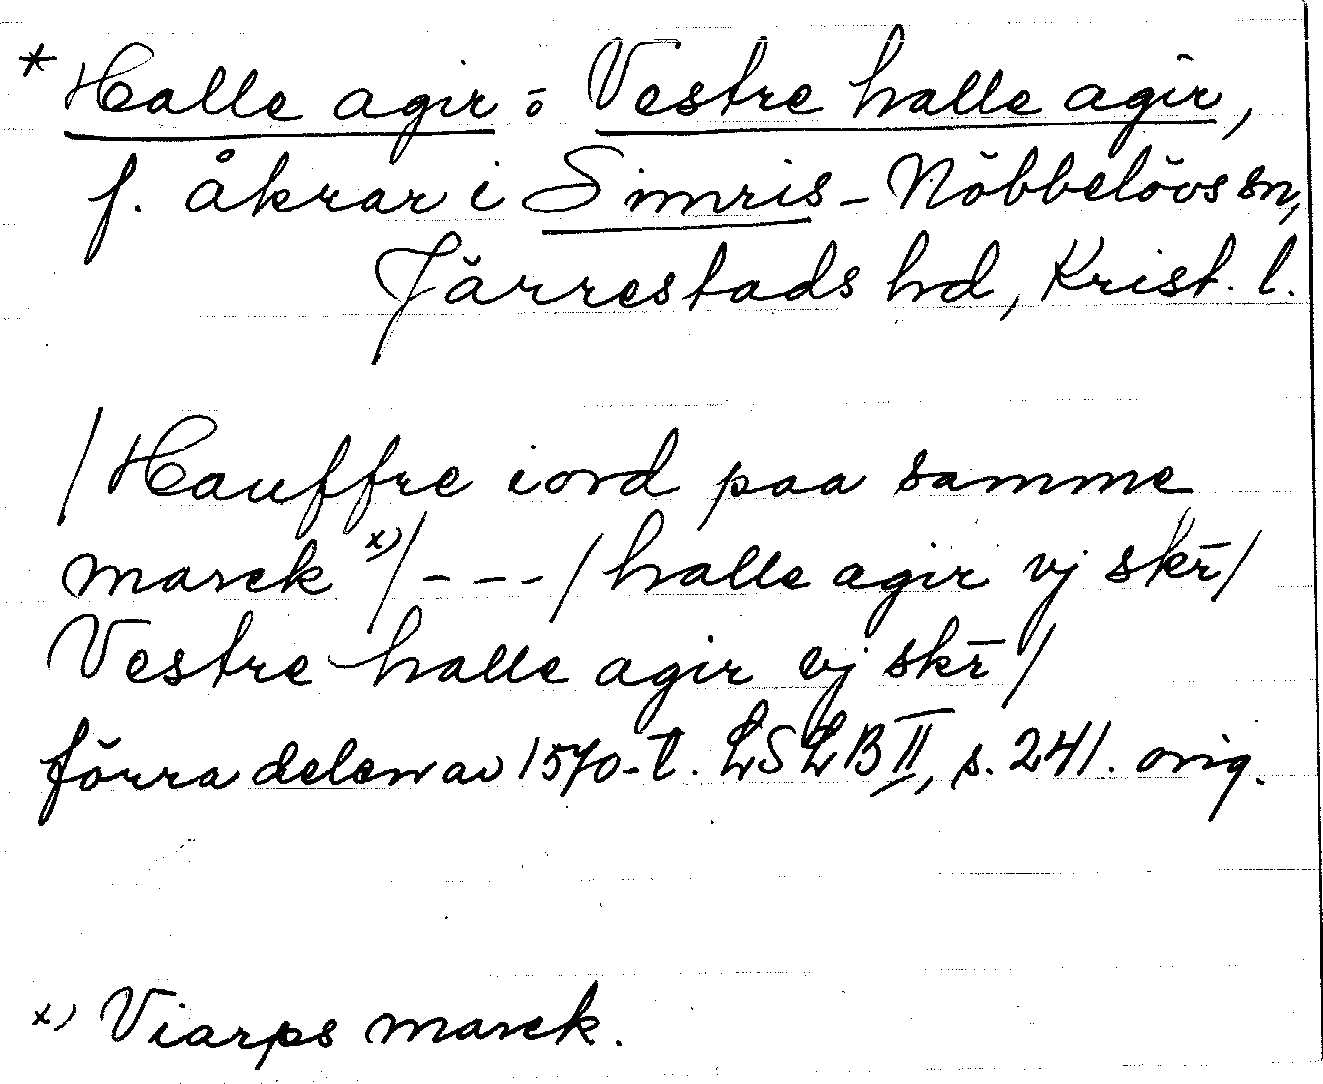 * Halle agir o: Vestre halle agir,
f. åkrar i Simris-Nöbbelövs sn,
Järrestads hd, Krist. l.
/Hauffre iord paa samme
marck x)/ - - - /halle agir vj skr̄/
Vestre halle agir vj skr̄/
förra delen av 1570-t. LSLB II, s. 241. orig.
x) Viarps marck.